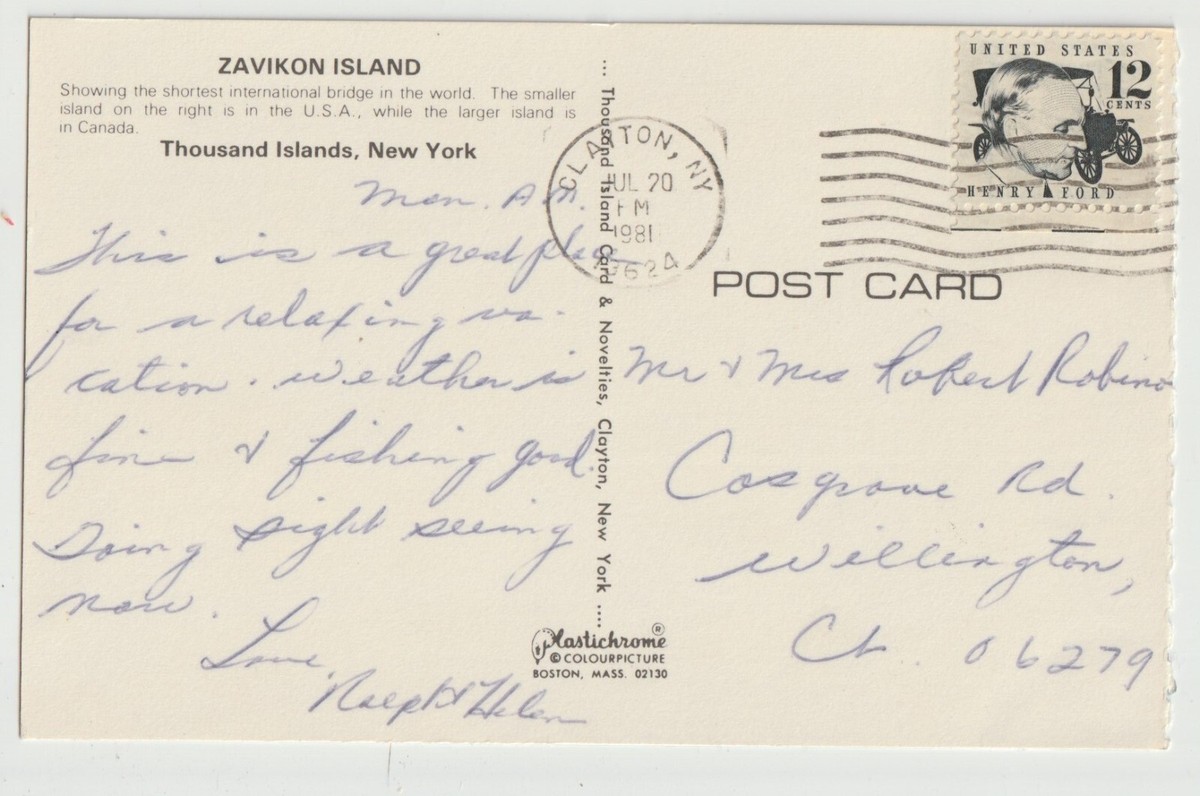 ZAVIKON ISLAND
Showing the shortest international bridge in the world. The smaller
island on the right is in the U.S.A., while the larger island is
in Canada.
Thousand Islands, New York
Mon. A.M.
This is a great place
for a relaxing va-
cation. Weather is
fine & fishing good.
Doing sight seeing
now.
Love,
Ralph & Helen
... Thousand Island Card & Novelties, Clayton, New York ....
Plastichrome ®
© COLOURPICTURE
BOSTON, MASS. 02130
CLAYTON, NY
JUL 20
PM
1981
13624
UNITED STATES
12
CENTS
HENRY FORD
POST CARD
Mr & Mrs Robert Robino
Cosgrove Rd.
Willington,
Ct. 06279